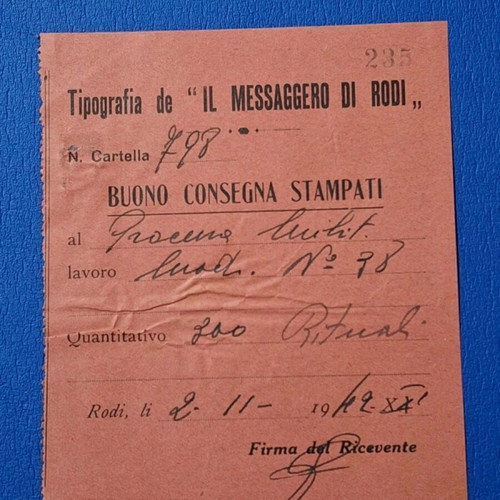 235
Tipografia de "IL MESSAGGERO DI RODI„
N. Cartella 798
BUONO CONSEGNA STAMPATI
al Milit.
lavoro Mod. Nº 38
Quantitativo 300 Rituali
Rodi, li 2-11- 1942-XXI
Firma del Ricevente